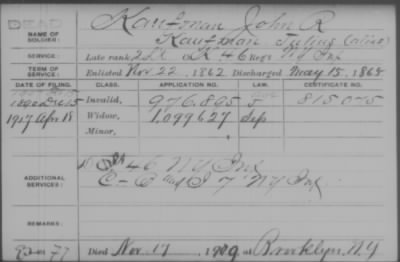 DEAD
NAME OF SOLDIER:
Kaufman John R
Kaufman Julius (alias)
SERVICE:
Late rank 2 Lt K 46 Regt NY Inf
TERM OF SERVICE:
Enlisted Nov. 22, 1862 Discharged May 15, 1865
DATE OF FILING. CLASS. APPLICATION NO. LAW. CERTIFICATE NO.
1890 Dec 15 Invalid, 976.895 815075
1917 Apr 18 Widow, 1.099627
Minor,
ADDITIONAL SERVICES:
D 46 NY Inf
C-E and I 7 NY Inf
REMARKS:
Died Nov. 17 1909 at Brooklyn N.Y